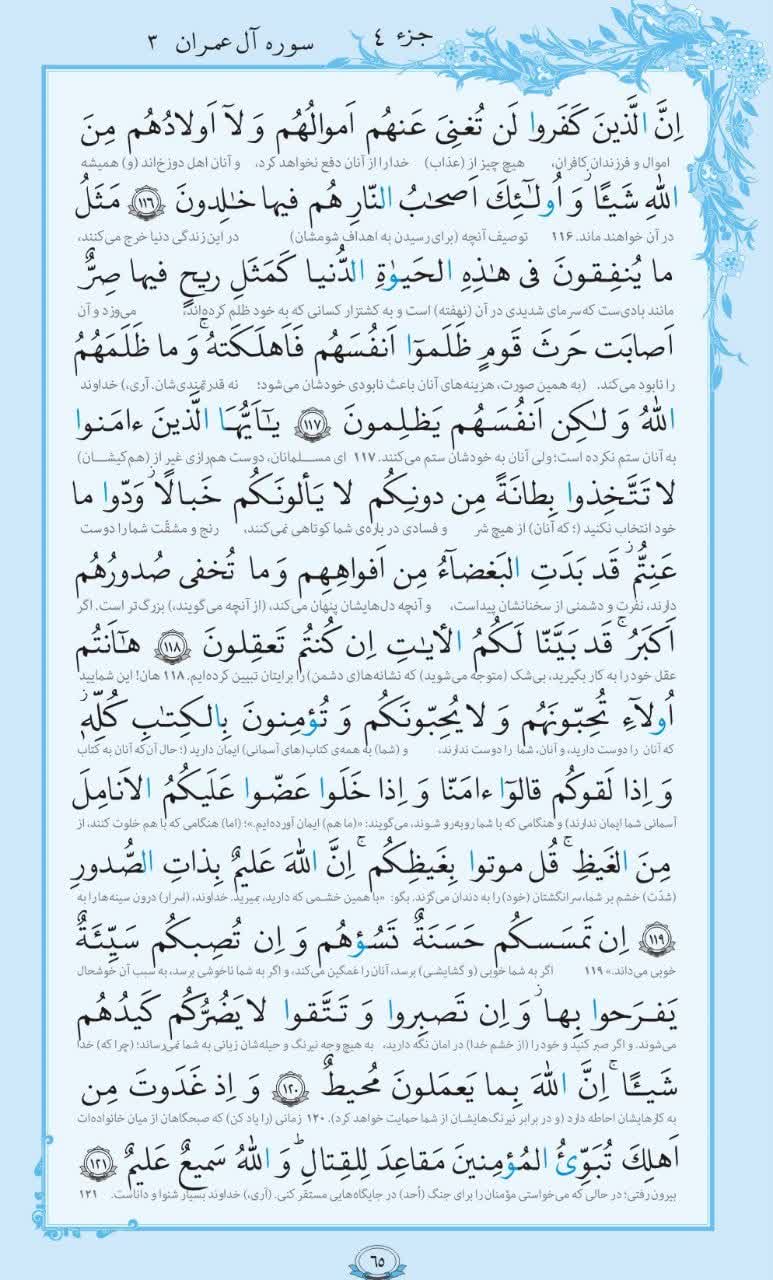 جزء ٤
سوره آل عمران ٣
اِنَّ الَّذینَ کَفَروا لَن تُغنِیَ عَنهُم اَموالُهُم وَ لآ اَولادُهُم مِنَ
اموال و فرزندان کافران، هیچ چیز از (عذاب) خدا را از آنان دفع نخواهد کرد، و آنان اهل دوزخ‌اند (و) همیشه
اللهِ شَیئًا ۖ وَ اُولـٰئِكَ اَصحـٰبُ النّارِ هُم فیها خـٰلِدونَ ﴿١١٦﴾ مَثَلُ
در آن خواهند ماند. ۱۱۶ توصیف آنچه (برای رسیدن به اهداف شومشان) در این زندگی دنیا خرج می‌کنند،
ما یُنفِقونَ فی هـٰذِهِ الحَیوٰةِ الدُّنیا کَمَثَلِ ریحٍ فیها صِرٌّ
مانند بادی‌ست که سرمای شدیدی در آن (نهفته) است و به کشتزار کسانی که به خود ظلم کرده‌اند، می‌وزد و آن
اَصابَت حَرثَ قَومٍ ظَلَموٓا اَنفُسَهُم فَاَهلَکَتهُ ۚ وَ ما ظَلَمَهُمُ
را نابود می‌کند. (به همین صورت، هزینه‌های آنان باعث نابودی خودشان می‌شود؛ نه قدرتمندی‌شان. آری،) خداوند
اللهُ وَ لـٰکِن اَنفُسَهُم یَظلِمونَ ﴿١١٧﴾ یـٰٓاَیُّهَا الَّذینَ ءامَنوا
به آنان ستم نکرده است؛ ولی آنان به خودشان ستم می‌کنند. ۱۱۷ ای مسلمانان، دوست هم‌رازی غیر از (هم‌کیشان)
لا تَتَّخِذوا بِطانَةً مِن دونِکُم لا یَألونَکُم خَبالًا ۖ وَدّوا ما
خود انتخاب نکنید (؛ که آنان) از هیچ شر و فسادی در باره‌ی شما کوتاهی نمی‌کنند، رنج و مشقّت شما را دوست
عَنِتُّم ۖ قَد بَدَتِ البَغضآءُ مِن اَفواهِهِم وَ ما تُخفی صُدورُهُم
دارند، نفرت و دشمنی از سخنانشان پیداست، و آنچه دل‌هایشان پنهان می‌کند، (از آنچه می‌گویند،) بزرگ‌تر است. اگر
اَکبَرُ ۚ قَد بَیَّنّا لَکُمُ الأیـٰتِ اِن کُنتُم تَعقِلونَ ﴿١١٨﴾ هـٰٓاَنتُم
عقل خود را به کار بگیرید، بی‌شک (متوجه می‌شوید) که نشانه‌ها(ی دشمن) را برایتان تبیین کرده‌ایم. ۱۱۸ هان! این شمایید
اُولآءِ تُحِبّونَهُم وَ لا یُحِبّونَکُم وَ تُؤمِنونَ بِالکِتـٰبِ کُلِّهٖ
که آنان را دوست دارید، و آنان، شما را دوست ندارند، و (شما) به همه‌ی کتاب(های آسمانی) ایمان دارید (؛ حال آن‌که آنان به کتاب
وَ اِذا لَقوکُم قالوٓا ءامَنّا وَ اِذا خَلَوا عَضّوا عَلَیکُمُ الاَنامِلَ
آسمانی شما ایمان ندارند) و هنگامی که با شما روبه‌رو شوند، می‌گویند: «(ما هم) ایمان آورده‌ایم.»؛ (اما) هنگامی که با هم خلوت کنند، از
مِنَ الغَیظِ ۚ قُل موتوا بِغَیظِکُم ۚ اِنَّ اللهَ عَلیمٌ بِذاتِ الصُّدورِ
(شدّت) خشم بر شما، سرانگشتان (خود) را به دندان می‌گزند. بگو: «با همین خشمی که دارید، بمیرید. خداوند، (اسرار) درون سینه‌ها را به
﴿١١٩﴾ اِن تَمسَسکُم حَسَنَةٌ تَسُؤهُم وَ اِن تُصِبکُم سَیِّئَةٌ
خوبی می‌داند.» ۱۱۹ اگر به شما خوبی (و گشایشی) برسد، آنان را غمگین می‌کند، و اگر به شما ناخوشی برسد، به سبب آن خوشحال
یَفرَحوا بِها ۖ وَ اِن تَصبِروا وَ تَتَّقوا لا یَضُرُّکُم کَیدُهُم
می‌شوند. و اگر صبر کنید و خود را (از خشم خدا) در امان نگه دارید، به هیچ وجه نیرنگ و حیله‌شان زیانی به شما نمی‌رساند؛ (چرا که) خدا
شَیئًا ۚ اِنَّ اللهَ بِما یَعمَلونَ مُحیطٌ ﴿١٢٠﴾ وَ اِذ غَدَوتَ مِن
به کارهایشان احاطه دارد (و در برابر نیرنگ‌هایشان از شما حمایت خواهد کرد). ۱۲۰ زمانی (را یاد کن) که صبحگاهان از میان خانواده‌ات
اَهلِكَ تُبَوِّئُ المُؤمِنینَ مَقاعِدَ لِلقِتالِ ۗ وَ اللهُ سَمیعٌ عَلیمٌ ﴿١٢١﴾
بیرون رفتی؛ در حالی که می‌خواستی مؤمنان را برای جنگ (اُحد) در جایگاه‌هایی مستقر کنی. (آری،) خداوند بسیار شنوا و داناست. ۱۲۱
٦٥